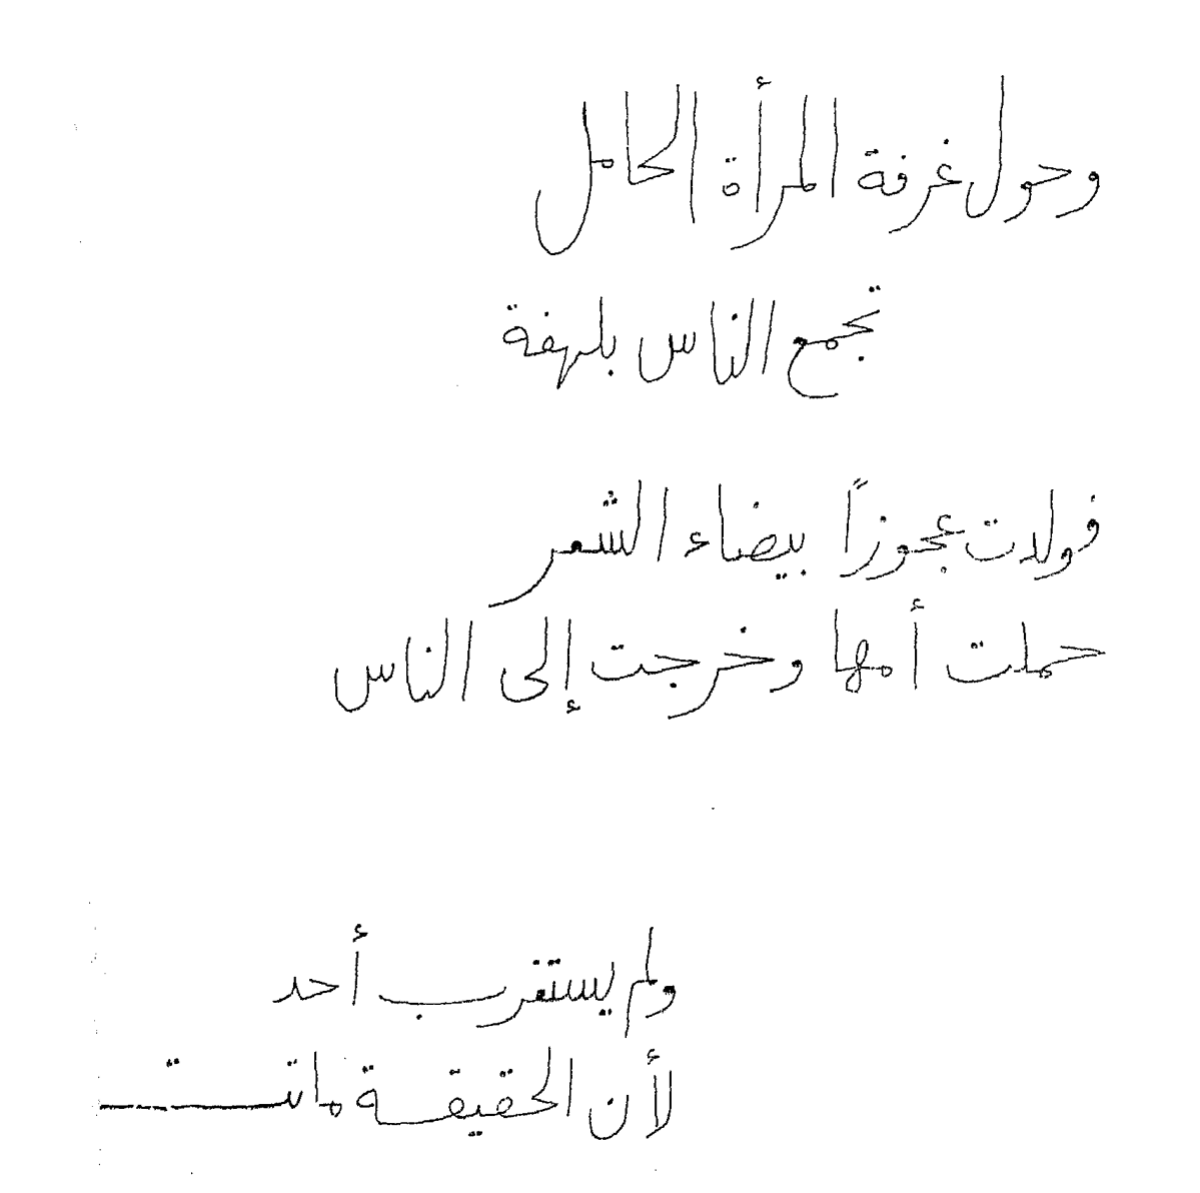 وحول غرفة المرأة الحامل
تجمع الناس بلهفة
فولدت عجوزاً بيضاء الشعر
حملت أمها وخرجت إلى الناس
ولم يستغرب أحد
لأن الحقيقة ماتت